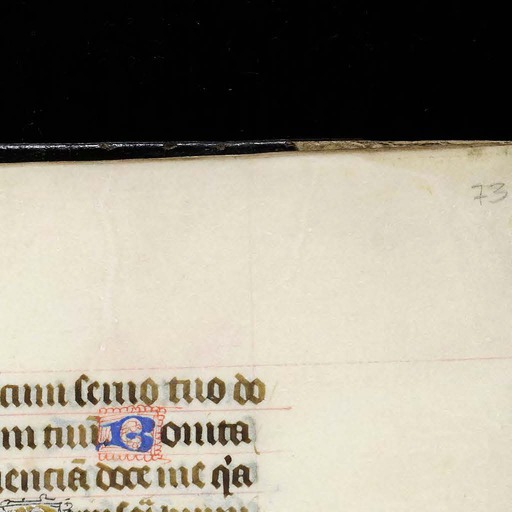 73
cum seruo tuo do
m tuū Bonita
ientiā doce me q̇a